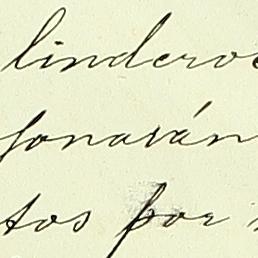 linderos
sonarán
tos por